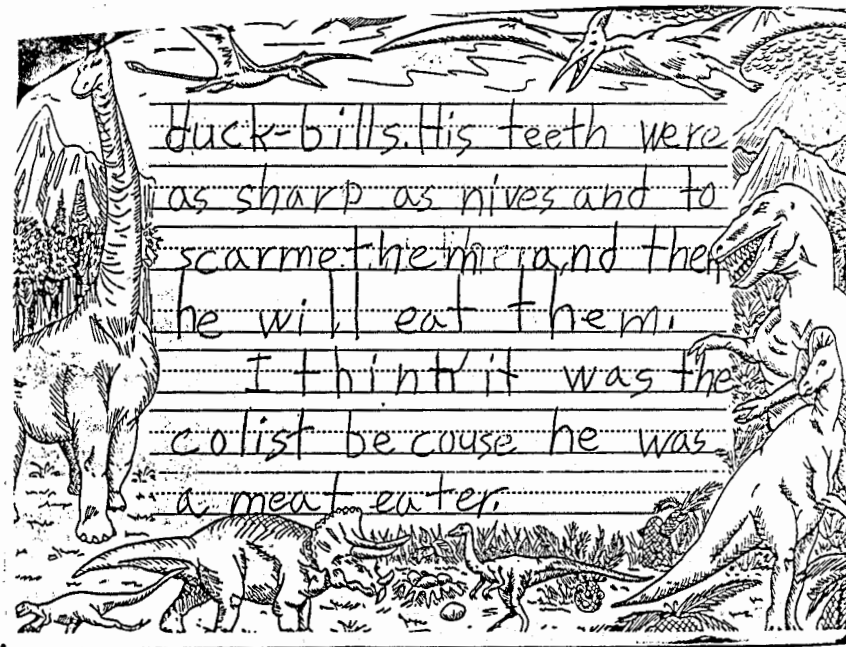 duck-bills. His teeth were
as sharp as nives and to
scarme them and then
he will eat them.
I think it was the
colist becouse he was
a meat eater.